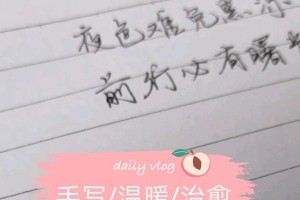 夜色难免黑凉
前行必有曙
daily vlog
手写/温暖/治愈